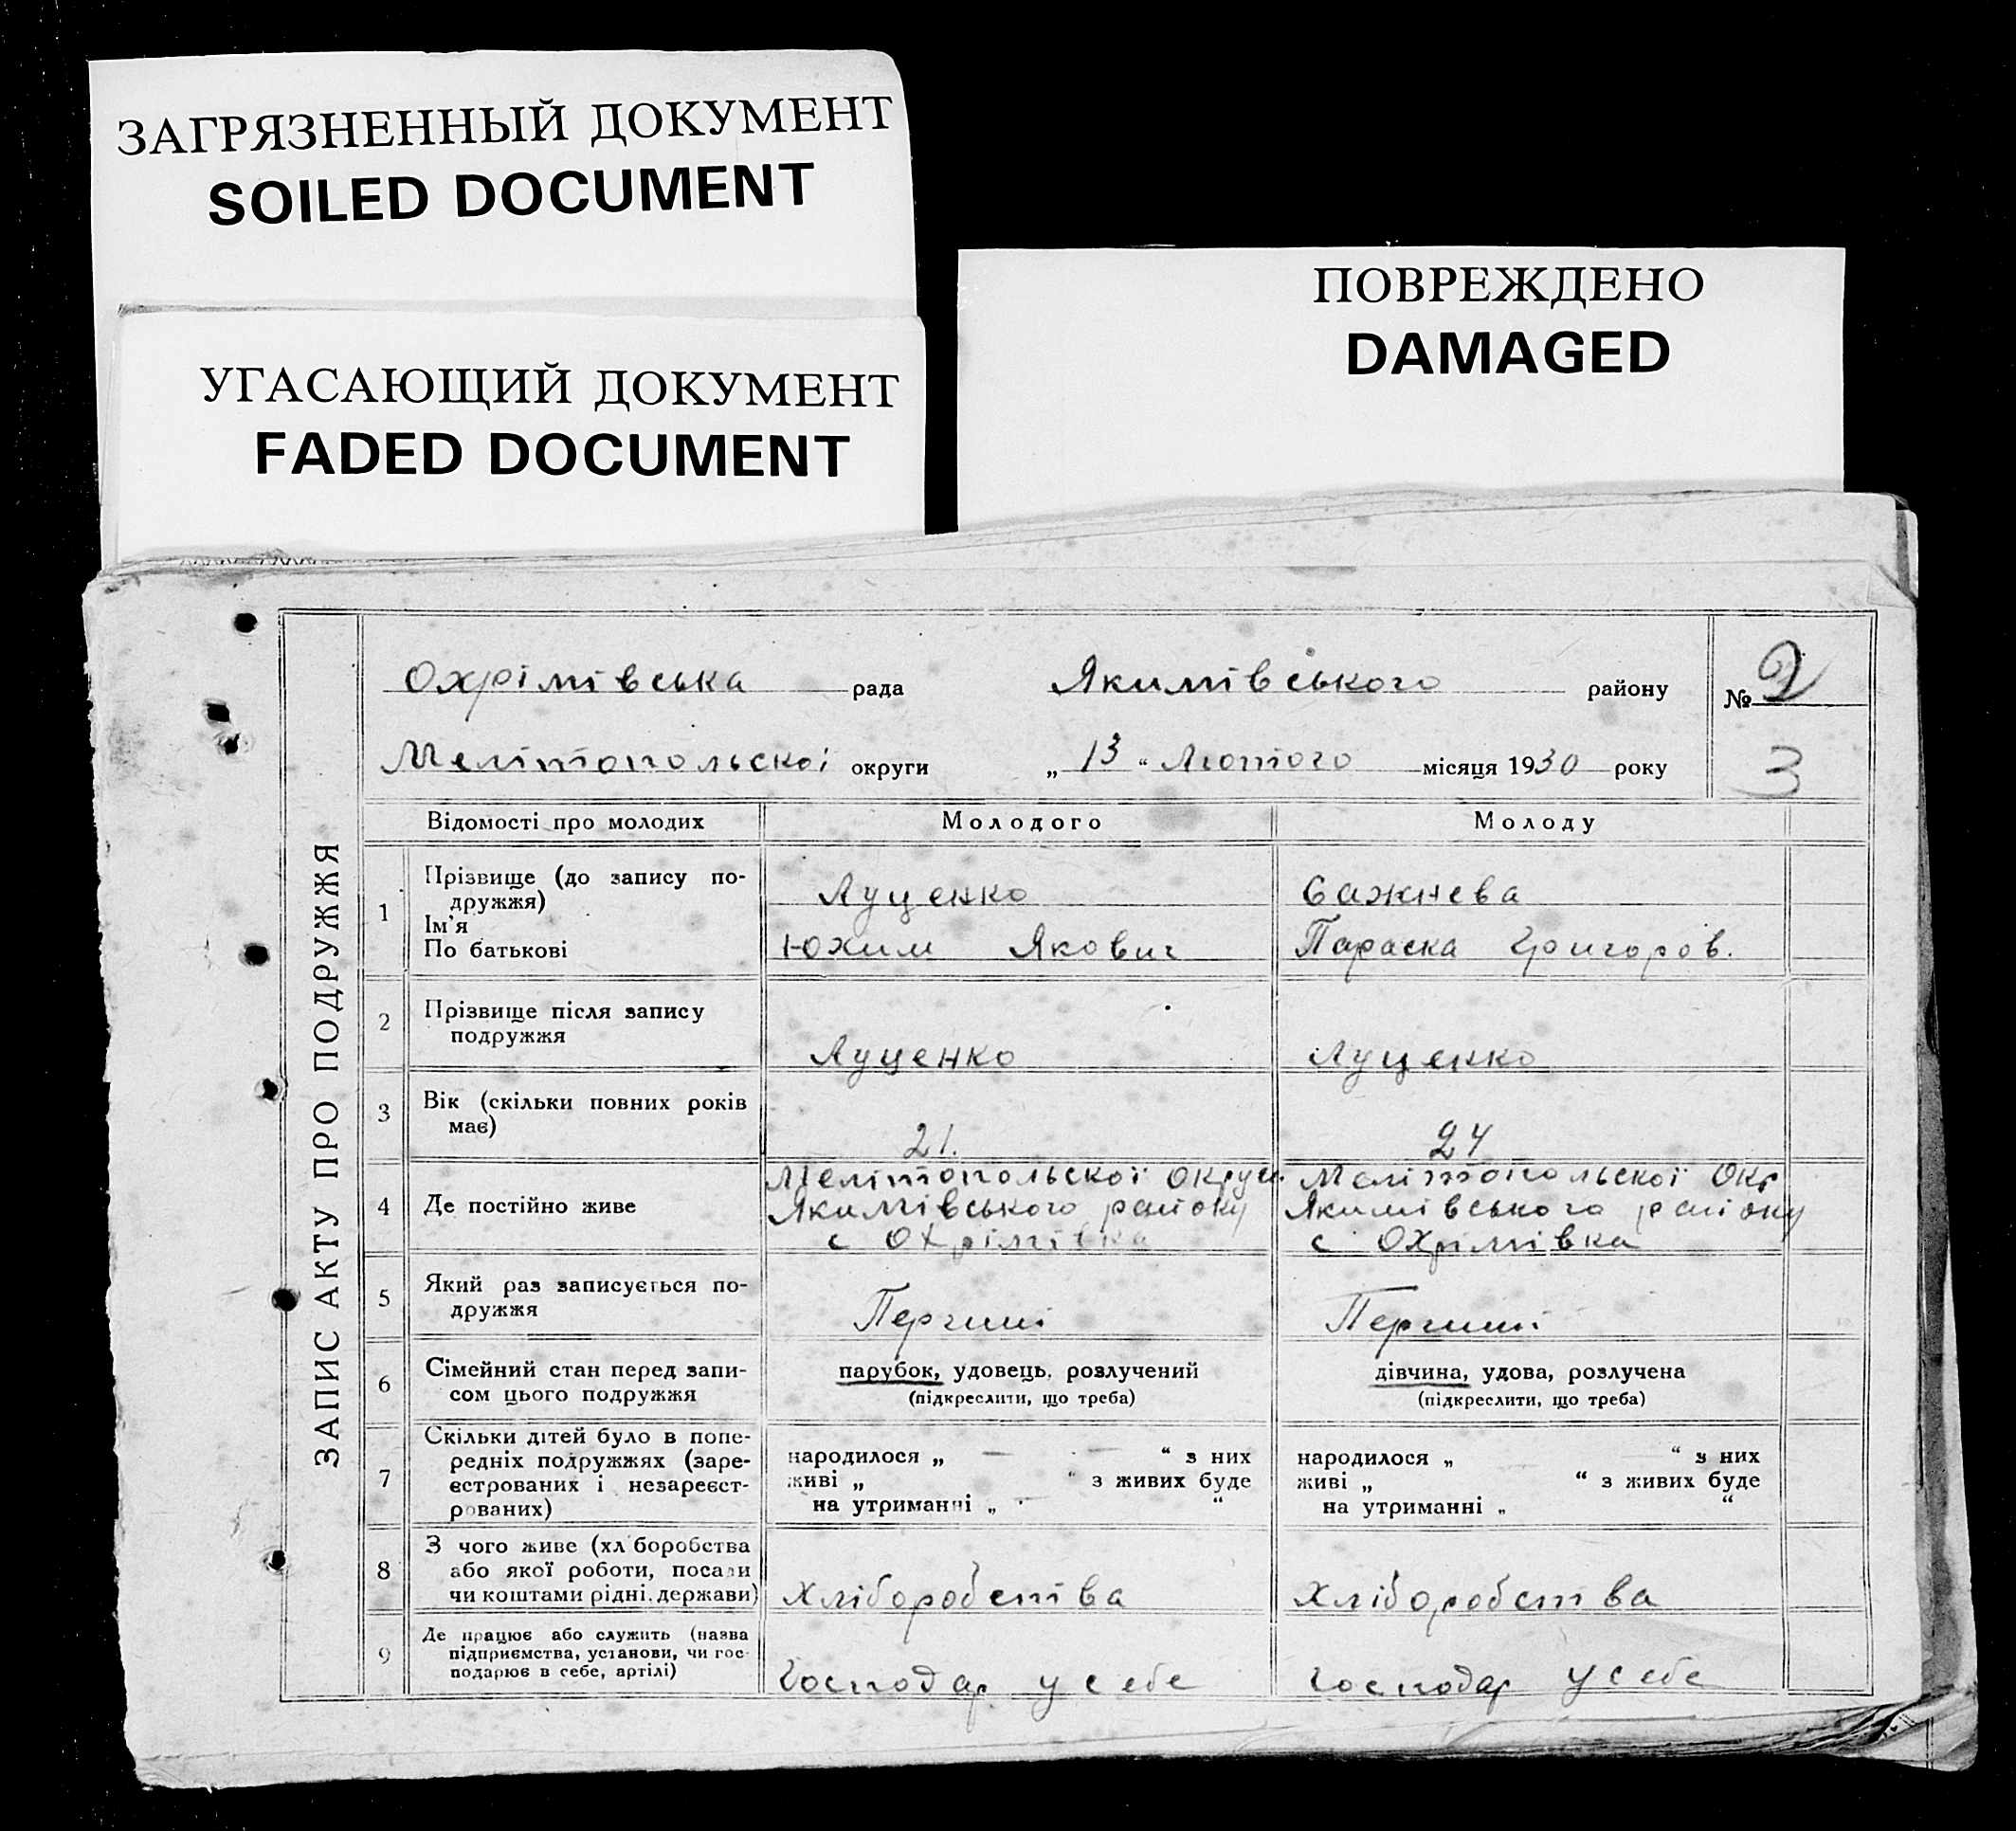 ЗАГРЯЗНЕННЫЙ ДОКУМЕНТ
SOILED DOCUMENT
УГАСАЮЩИЙ ДОКУМЕНТ
FADED DOCUMENT
ПОВРЕЖДЕНО
DAMAGED
ЗАПИС АКТУ ПРО ПОДРУЖЖЯ
Охрімівська рада Якимівського району № 2
Мелітопольскої округи „13“ Лютого місяця 1930 року 3
Відомості про молодих Молодого Молоду
1 Прізвище (до запису по-
дружжя) Луценко Сажнева
Ім'я
По батькові Юхим Якович Параска Григоров.
2 Прізвище після запису
подружжя Луценко Луценко
3 Вік (скільки повних років
має) 21. 24
4 Де постійно живе
Мелітопольскої Округи Мелітопольскої Окр
Якимівського району Якимівського району
с Охрімівка с Охрімівка
5 Який раз записується по-
дружжя Перший Перший
6 Сімейний стан перед запи-
сом цього подружжя
парубок, удовець, розлучений дівчина, удова, розлучена
(підкреслити, що треба) (підкреслити, що треба)
7 Скільки дітей було в попе-
редніх подружжях (заре-
єстрованих і незареєст-
рованих)
народилося „ — — “ з них народилося „ “ з них
живі „ “ з живих буде живі „ “ з живих буде
на утриманні „ “ на утриманні „ “
8 З чого живе (хліборобства
або якої роботи, посади
чи коштами рідні, держави) Хліборобства Хліборобства
9 Де працює або служить (назва
підприємства, установи, чи гос-
подарює в себе, артілі) Господар у себе Господар у себе